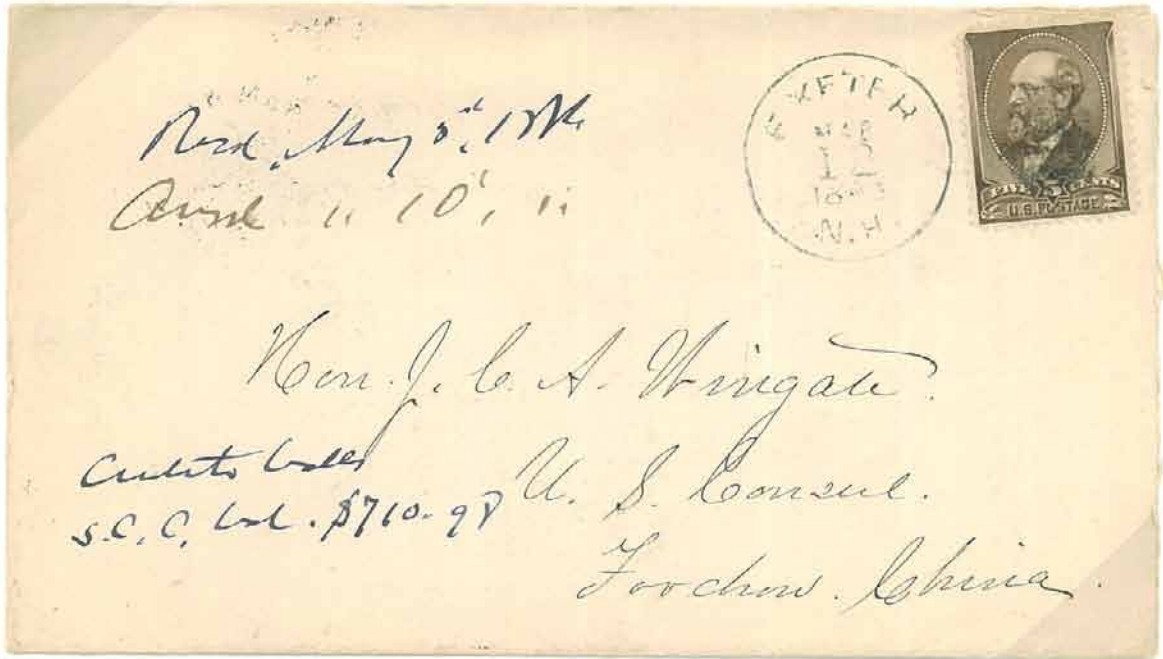 Recd. May 5", 1886
" 10", "
EXETER
MAR
12
N.H.
FIVE 5 CENTS
U.S. POSTAGE
Hon. J. C. A. Wingate.
U. S. Consul.
Foochow. China.
S.C.C. $710.98